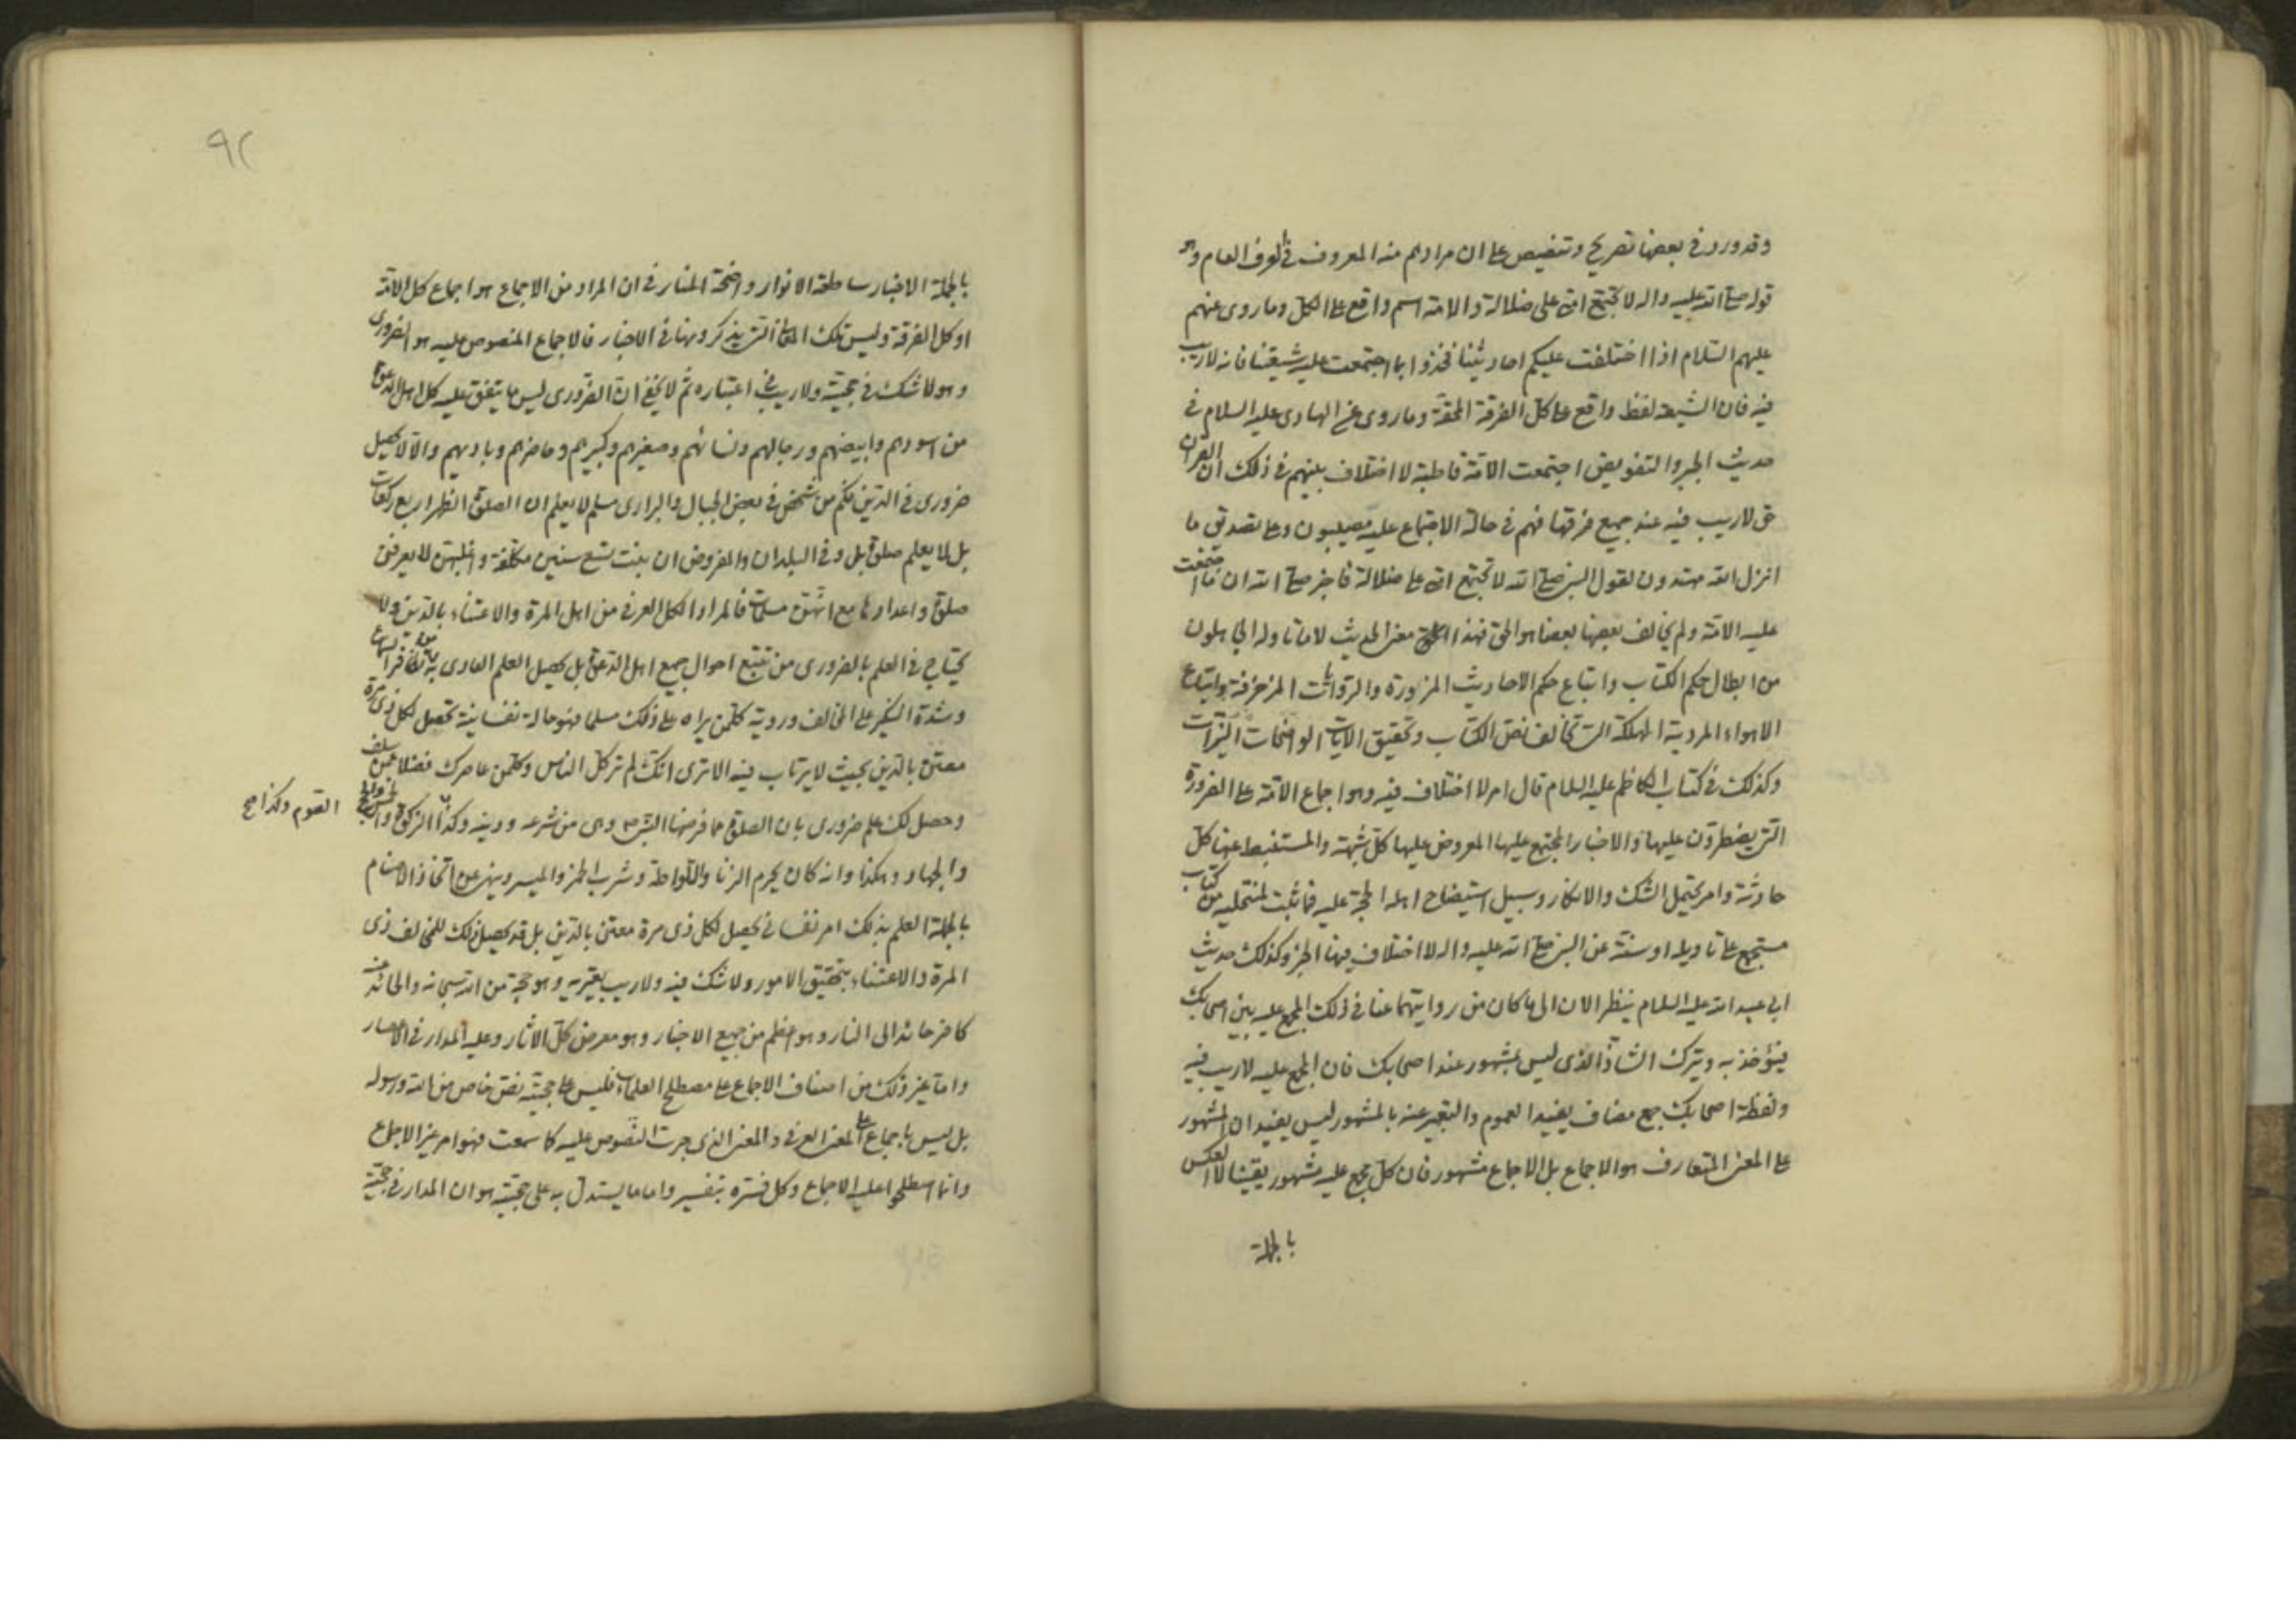 وقد ورد في بعضها تصريح وتنصيص على ان مرادهم منه المعروف في العرف العام وهو
قوله صلى الله عليه واله لا تجتمع امتي على ضلالة والامة اسم واقع على الكل وما روى عنهم
عليهم السلام اذا اختلفت عليكم احاديثنا فخذوا بما اجتمعت عليه شيعتنا فانه لا ريب
فيه فان الشيعة لفظ واقع على كل الفرقة المحقة وما روى عن الهادى عليه السلام في
حديث الجبر والتفويض اجتمعت الامة قاطبة لا اختلاف بينهم في ذلك ان القران
حق لا ريب فيه عند جميع فرقها فهم في حالة الاجتماع عليه مصيبون وعلى تصديق ما
انزل الله مهتدون لقول النبي صلى الله لا تجتمع امتي على ضلالة فاخبر صلى الله ان ما اجتمعت
عليه الامة ولم يخالف بعضها بعضا هو الحق فهذا معنى الحديث لا ما تاوله الجاهلون
من ابطال حكم الكتاب واتباع حكم الاحاديث المزورة والروايات المزخرفة واتباع
الاهواء المردية المهلكة التي تخالف نص الكتاب وتحقيق الايات الواضحات النيرات
وكذلك في كتاب الكاظم عليه السلام قال امر لا اختلاف فيه وهو اجماع الامة على الضرورة
التي يضطرون عليها والاخبار المجتمع عليها المعروض عليها كل شبهة والمستنبط عنها كل
حادثة وامر يحتمل الشك والانكار وسبيل استيضاح اهله الحجة عليه فما ثبت لمنتحليه من كتاب
مستجمع على تاويله او سنة عن النبي صلى الله عليه واله لا اختلاف فيها الخبر وكذلك حديث
ابي عبد الله عليه السلام ينظر الان الى ما كان من روايتهما عنا في ذلك المجمع عليه بين اصحابك
فيؤخذ به ويترك الشاذ الذى ليس بمشهور عند اصحابك فان المجمع عليه لا ريب فيه
ولفظة اصحابك جمع مضاف يفيد العموم والتعبير عنه بالمشهور ليس يفيد ان المشهور
على المعنى المتعارف هو الاجماع بل الاجماع مشهور فان كل مجمع عليه مشهور يقينا لا العكس
بالجملة
٩٢
بالجملة الاخبار ساطعة الانوار واضحة المنار في ان المراد من الاجماع هو اجماع كل الامة
او كل الفرقة وليس تلك المعاني التي يذكرونها في الاخبار فالاجماع المنصوص عليه هو الضرورى
وهو لا شك في حجيته ولا ريب في اعتباره ثم لا يخفى ان الضرورى ليس ما يتفق عليه كل اهل الدعوة
من اسودهم وابيضهم ورجالهم ونسائهم وصغيرهم وكبيرهم وحاضرهم وباديهم والا لا يحصل
ضرورى في الدين فكم من شخص في بعض الجبال والبرارى مسلم لا يعلم ان الصلوة الظهر اربع ركعات
بل لا يعلم صلوة بل وفي البلدان والمفروض ان بنت تسع سنين مكلفة واغلبهن لا يعرفن
صلوة واعدادها مع انهن مسلمات فالمراد الكل العرفي من اهل المرة والاعتناء بالدين ولا
يحتاج في العلم بالضرورى من تتبع احوال جميع اهل الدعوة بل يحصل العلم العادى به
وشدة النكير على المخالف وروية كلمن يراه على ذلك مسلما فهو حالة نفسانية تحصل لكل ذى مرة
معتن بالدين بحيث لا يرتاب فيه الا ترى انك لم تر كل الناس وكلمن عاصرك فضلا عمن سلف
وحصل لك علم ضرورى بان الصلوة مما فرضها النبي ص وهى من شرعه ودينه وكذا الزكوة
الصوم وكذا صح
والجهاد وهكذا وانه كان يحرم الزنا واللواطة وشرب الخمر والميسر وينهى عن اتخاذ الاصنام
بالجملة العلم بذلك امر نفساني يحصل لكل ذى مرة معتن بالدين بل قد يحصل ذلك للمخالف ذى
المرة والاعتناء بتحقيق الامور ولا شك فيه ولا ريب يعتريه وهو حجة من الله سبحانه والحائد عنه
كافر حائد الى النار وهو اعظم من جميع الاخبار وهو معرض كل الاثار وعليه المدار في الاعصار
واما غير ذلك من اصناف الاجماع على مصطلح العلماء فليس على حجيته نص خاص من الله ورسوله
بل ليس باجماع على المعنى العرفي والمعنى الذى جرت النصوص عليه كما سمعت فهو امر غير الاجماع
وانما اصطلحوا عليه الاجماع وكل فسره بتفسير واما ما يستدل به على حجيته هو ان المدار في حجية